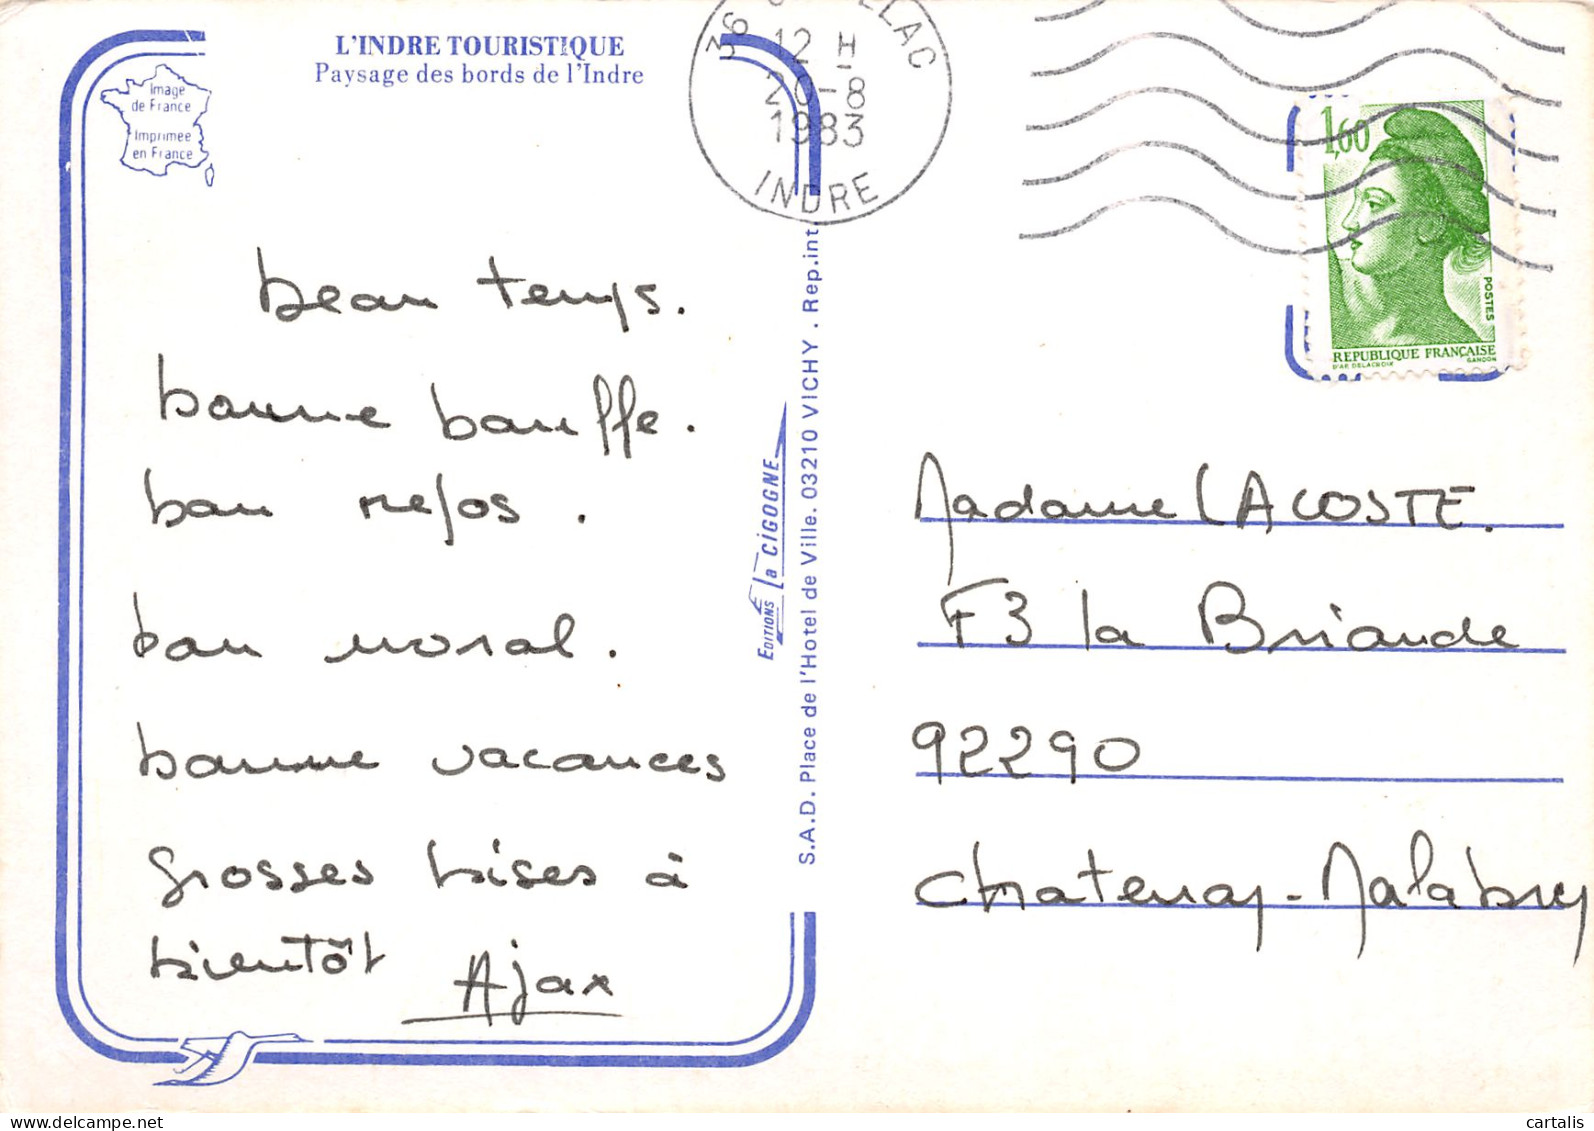 L'INDRE TOURISTIQUE
Paysage des bords de l'Indre
Image
de France
Imprimée
en France
beau temps.
bonne bouffe.
bon repos.
bon moral.
bonne vacances
grosses bises à
bientôt Ajax
EDITIONS La CIGOGNE
S.A.D. Place de l'Hotel de Ville. 03210 VICHY. Rep.int.
36
12 H
20-8
1983
INDRE
1,60
POSTES
REPUBLIQUE FRANÇAISE
D'AP. DELACROIX GANDON
Madame LACOSTE.
F3 la Briande
92290
Chatenay-Malabry
cartalis